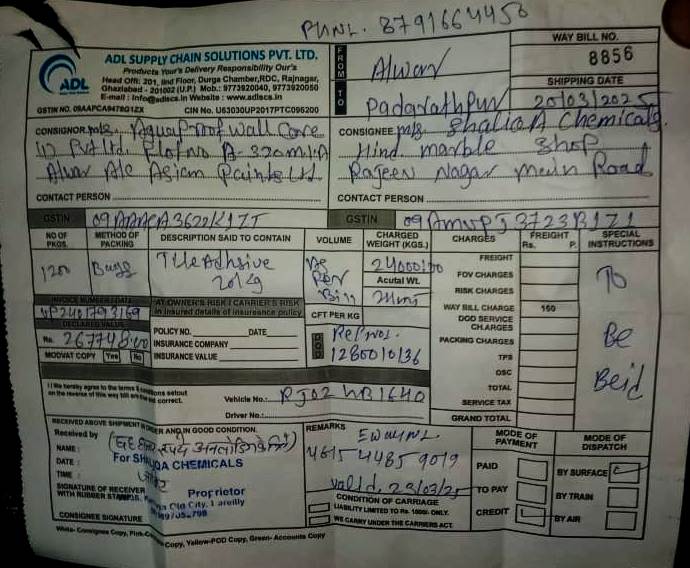 PHNL. 8791664458
ADL SUPPLY CHAIN SOLUTIONS PVT. LTD.
Products Your's Delivery Responsibility Our's
Head Off: 201, IInd Floor, Durga Chamber, RDC, Rajnagar,
Ghaziabad - 201002 (U.P.) Mob.: 9773920040, 9773920050
E-mail : Info@adlscs.in Website : www.adlscs.in
ADL
GSTIN NO. 09AAPCA9478G1ZX CIN No. U63030UP2017PTC096200
FROM
Alwar
TO
Padarathpur
WAY BILL NO.
8856
SHIPPING DATE
20/03/2025
CONSIGNOR M/s. Aquaproof Wall Care
Pvt Ltd. Plot no A-320 M.I.A
Alwar A/c Asian Paints Ltd.
CONTACT PERSON
CONSIGNEE M/s. Shaliqa Chemicals.
Hind marble Shop
Rajeen Nagar Main Road
CONTACT PERSON
GSTIN 09AAACA3622K1ZT
GSTIN 09AMVPJ3723B1Z1
NO OF PKGS.
METHOD OF PACKING
DESCRIPTION SAID TO CONTAIN
VOLUME
CHARGED WEIGHT (KGS.)
CHARGES
FREIGHT
Rs. P.
SPECIAL INSTRUCTIONS
1200
Bags
Tile Adhsive
20kg
As
Per
Bill
24000/00
Acutal Wt.
FREIGHT
FOV CHARGES
RISK CHARGES
WAY BILL CHARGE 150
DOD SERVICE CHARGES
PACKING CHARGES
TPS
OSC
TOTAL
SERVICE TAX
GRAND TOTAL
To
Be
Beid
INVOICE NUMBER / DATE
UP2401793169
DECLARED VALUE
Rs. 267748.00
MODVAT COPY Yes No
AT OWNER'S RISK / CARRIER'S RISK
In insured details of insurance policy
POLICY NO. DATE
INSURANCE COMPANY
INSURANCE VALUE
CFT PER KG
DOD
Ref no.
1280010136
I / We hereby agree to the terms & conditions setout
on the reverse of this way bill are correct.
Vehicle No.: RJ02 WB1640
Driver No.:
RECEIVED ABOVE SHIPMENT IN ORDER AND IN GOOD CONDITION.
Received by
NAME :
DATE :
TIME :
SIGNATURE OF RECEIVER
WITH RUBBER STAMP
CONSIGNEE SIGNATURE
For SHALIQA CHEMICALS
Proprietor
Old City, Bareilly
REMARKS
Eway NL
4615 4485 9019
Valid. 23/03/25
CONDITION OF CARRIAGE
LIABILITY LIMITED TO Rs. 1000/- ONLY.
WE CARRY UNDER THE CARRIERS ACT.
MODE OF PAYMENT
PAID
TO PAY
CREDIT
MODE OF DISPATCH
BY SURFACE
BY TRAIN
BY AIR
White- Consignee Copy, Pink- Copy, Yellow-POD Copy, Green- Accounts Copy